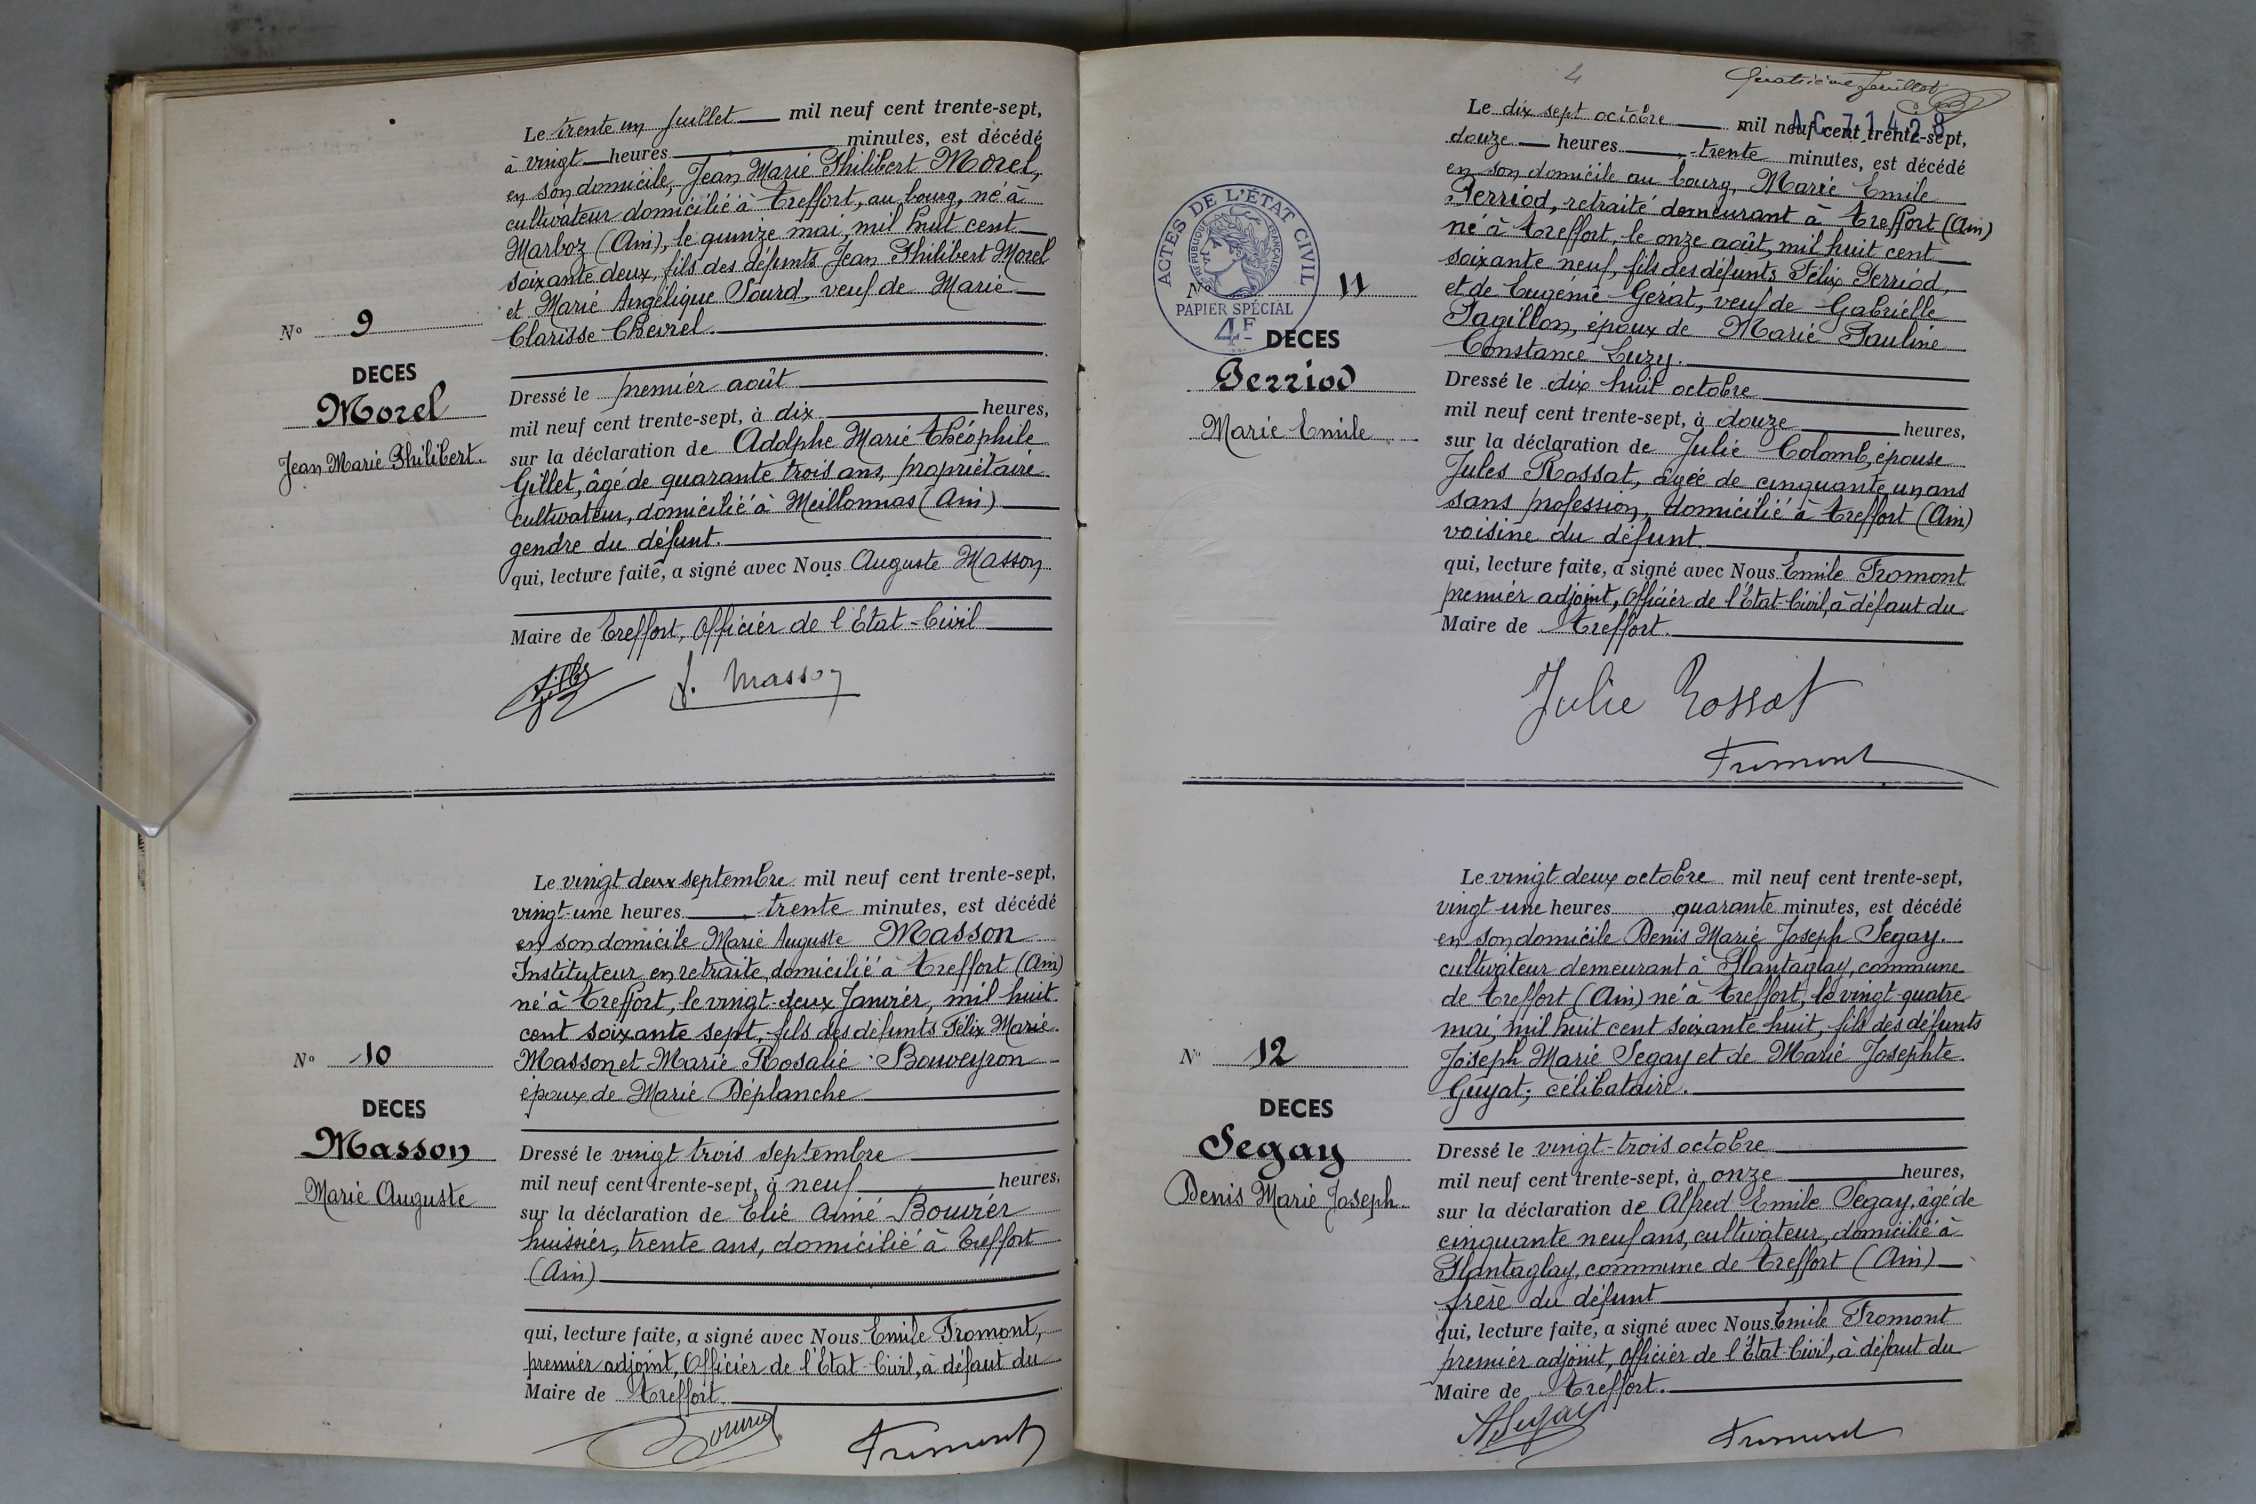 Le trente un Juillet mil neuf cent trente-sept,
à vingt heures minutes, est décédé
en son domicile, Jean Marie Philibert Morel,
cultivateur domicilié à Treffort, au bourg, né à
Marboz (Ain), le quinze mai, mil huit cent
soixante deux, fils des défunts Jean Philibert Morel
et Marie Angélique Sourd, veuf de Marie
Clarisse Chevrel.
N° 9
DECES
Morel
Jean Marie Philibert.
Dressé le premier août
mil neuf cent trente-sept, à dix heures,
sur la déclaration de Adolphe Marie Théophile
Gillet, âgé de quarante trois ans, propriétaire
cultivateur, domicilié à Meillonnas (Ain)
gendre du défunt.
qui, lecture faite, a signé avec Nous Auguste Masson
Maire de Treffort, Officier de l'Etat-Civil
A. Masson
Le vingt deux septembre mil neuf cent trente-sept,
vingt-une heures trente minutes, est décédé
en son domicile Marie Auguste Masson
Instituteur en retraite, domicilié à Treffort (Ain)
né à Treffort, le vingt-deux Janvier, mil huit
cent soixante sept, fils des défunts Félix Marie
Masson et Marie Rosalie Bouveyron
époux de Marie Déplanche
N° 10
DECES
Masson
Marie Auguste
Dressé le vingt trois septembre
mil neuf cent trente-sept, à neuf heures,
sur la déclaration de Elie Aimé Bouvier
huissier, trente ans, domicilié à Treffort
(Ain)
qui, lecture faite, a signé avec Nous Emile Fromont,
premier adjoint, Officier de l'Etat-Civil, à défaut du
Maire de Treffort.
Fromont
4
Quatrième feuillet
AC 71428
Le dix sept octobre mil neuf cent trente-sept,
douze heures trente minutes, est décédé
en son domicile au bourg, Marie Emile
Perriod, retraité demeurant à Treffort (Ain)
né à Treffort, le onze août, mil huit cent
soixante neuf, fils des défunts Félix Perriod,
et de Eugénie Gériat, veuf de Gabrielle
Pagillon, époux de Marie Pauline
Constance Luzy.
ACTES DE L'ÉTAT CIVIL
RÉPUBLIQUE FRANÇAISE
PAPIER SPÉCIAL
4F
N° 11
DECES
Perriod
Marie Emile
Dressé le dix huit octobre
mil neuf cent trente-sept, à douze heures,
sur la déclaration de Julie Colomb, épouse
Jules Rossat, âgée de cinquante un ans
sans profession, domicilié à Treffort (Ain)
voisine du défunt.
qui, lecture faite, a signé avec Nous Emile Fromont
premier adjoint, Officier de l'Etat-Civil, à défaut du
Maire de Treffort.
Julie Rossat
Fromont
Le vingt deux octobre mil neuf cent trente-sept,
vingt une heures quarante minutes, est décédé
en son domicile Denis Marie Joseph Segay.
cultivateur demeurant à Plantaglay, commune
de Treffort (Ain) né à Treffort, le vingt quatre
mai, mil huit cent soixante huit, fils des défunts
Joseph Marie Segay et de Marie Josephte
Guyat; célibataire.
N° 12
DECES
Segay
Denis Marie Joseph
Dressé le vingt-trois octobre
mil neuf cent trente-sept, à onze heures,
sur la déclaration de Alfred Emile Segay, âgé de
cinquante neuf ans, cultivateur, domicilié à
Plantaglay, commune de Treffort (Ain)
frère du défunt
qui, lecture faite, a signé avec Nous Emile Fromont
premier adjoint, Officier de l'Etat-Civil, à défaut du
Maire de Treffort.
ASegay
Fromont